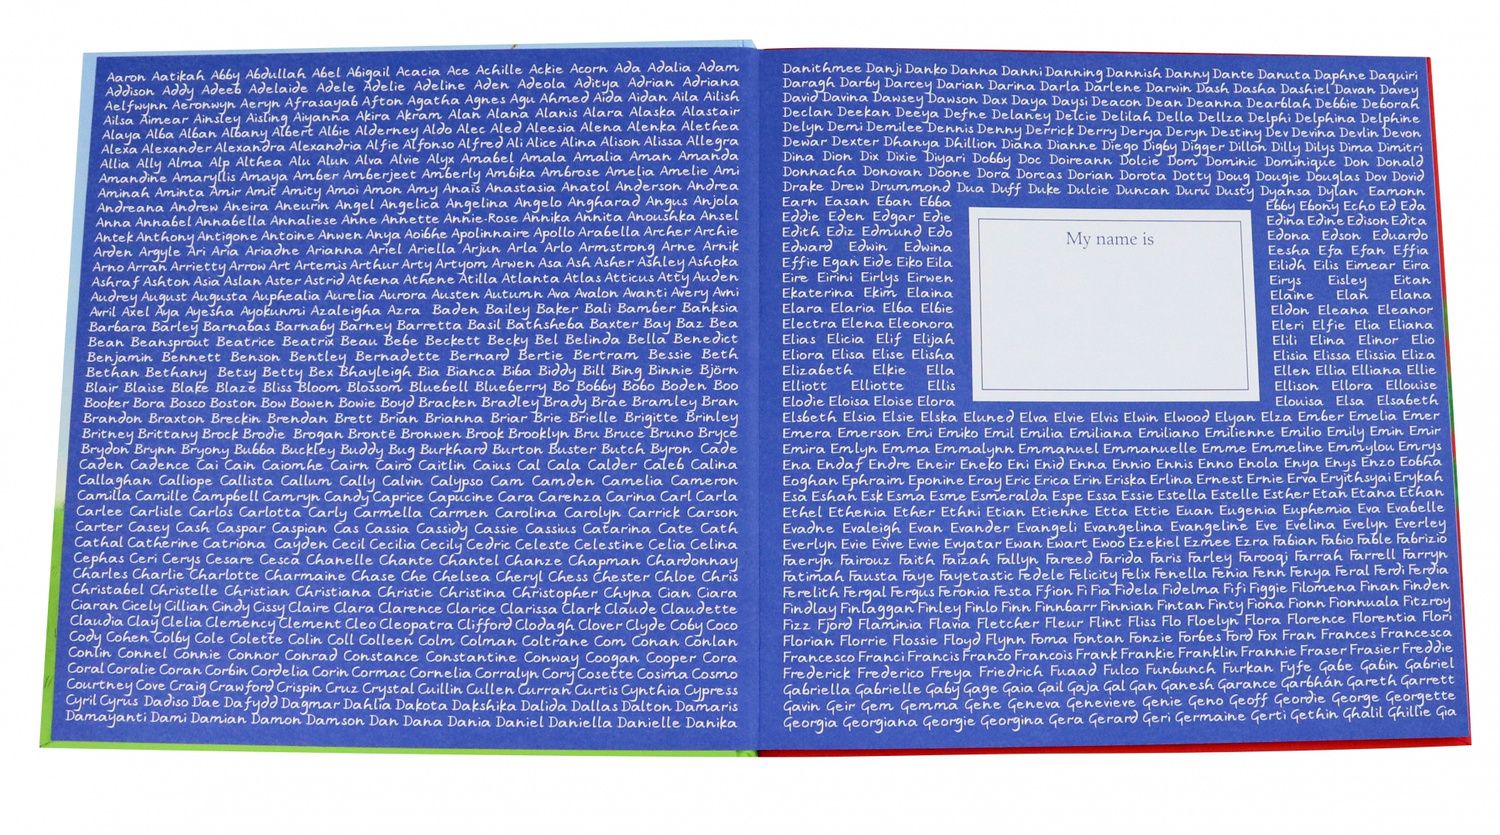 Aaron Aatikah Abby Abdullah Abel Abigail Acacia Ace Achille Ackie Acorn Ada Adalia Adam
Addison Addy Adeeb Adelaide Adele Adelie Adeline Aden Adeola Aditya Adrian Adriana
Aelfwynn Aeronwyn Aeryn Afrasayab Afton Agatha Agnes Agu Ahmed Aida Aidan Aila Ailish
Ailsa Aimear Ainsley Aisling Aiyanna Akira Akram Alan Alana Alanis Alara Alaska Alastair
Alaya Alba Alban Albany Albert Albie Alderney Aldo Alec Aled Aleesia Alena Alenka Alethea
Alexa Alexander Alexandra Alexandria Alfie Alfonso Alfred Ali Alice Alina Alison Alissa Allegra
Allia Ally Alma Alp Althea Alu Alun Alva Alvie Alyx Amabel Amala Amalia Aman Amanda
Amandine Amaryllis Amaya Amber Amberjeet Amberly Ambika Ambrose Amelia Amelie Ami
Aminah Aminta Amir Amit Amity Amoi Amon Amy Anaïs Anastasia Anatol Anderson Andrea
Andreana Andrew Aneira Aneurin Angel Angelica Angelina Angelo Angharad Angus Anjola
Anna Annabel Annabella Annaliese Anne Annette Annie-Rose Annika Annita Anoushka Ansel
Antek Anthony Antigone Antoine Anwen Anya Aoibhe Apolinnaire Apollo Arabella Archer Archie
Arden Argyle Ari Aria Ariadne Arianna Ariel Ariella Arjun Arla Arlo Armstrong Arne Arnik
Arno Arran Arrietty Arrow Art Artemis Arthur Arty Artyom Arwen Asa Ash Asher Ashley Ashoka
Ashraf Ashton Asia Aslan Aster Astrid Athena Athene Atilla Atlanta Atlas Atticus Atty Auden
Audrey August Augusta Auphealia Aurelia Aurora Austen Autumn Ava Avalon Avanti Avery Avni
Avril Axel Aya Ayesha Ayokunmi Azaleigha Azra Baden Bailey Baker Bali Bamber Banksia
Barbara Barley Barnabas Barnaby Barney Barretta Basil Bathsheba Baxter Bay Baz Bea
Bean Beansprout Beatrice Beatrix Beau Bebe Beckett Becky Bel Belinda Bella Benedict
Benjamin Bennett Benson Bentley Bernadette Bernard Bertie Bertram Bessie Beth
Bethan Bethany Betsy Betty Bex Bhayleigh Bia Bianca Biba Biddy Bill Bing Binnie Björn
Blair Blaise Blake Blaze Bliss Bloom Blossom Bluebell Blueberry Bo Bobby Bobo Boden Boo
Booker Bora Bosco Boston Bow Bowen Bowie Boyd Bracken Bradley Brady Brae Bramley Bran
Brandon Braxton Breckin Brendan Brett Brian Brianna Briar Brie Brielle Brigitte Brinley
Britney Brittany Brock Brodie Brogan Brontë Bronwen Brook Brooklyn Bru Bruce Bruno Bryce
Brydon Brynn Bryony Bubba Buckley Buddy Bug Burkhard Burton Buster Butch Byron Cade
Caden Cadence Cai Cain Caiomhe Cairn Cairo Caitlin Caius Cal Cala Calder Caleb Calina
Callaghan Calliope Callista Callum Cally Calvin Calypso Cam Camden Camelia Cameron
Camilla Camille Campbell Camryn Candy Caprice Capucine Cara Carenza Carina Carl Carla
Carlee Carlisle Carlos Carlotta Carly Carmella Carmen Carolina Carolyn Carrick Carson
Carter Casey Cash Caspar Caspian Cas Cassia Cassidy Cassie Cassius Catarina Cate Cath
Cathal Catherine Catriona Cayden Cecil Cecilia Cecily Cedric Celeste Celestine Celia Celina
Cephas Ceri Cerys Cesare Cesca Chanelle Chante Chantel Chanze Chapman Chardonnay
Charles Charlie Charlotte Charmaine Chase Che Chelsea Cheryl Chess Chester Chloe Chris
Christabel Christelle Christian Christiana Christie Christina Christopher Chyna Cian Ciara
Ciaran Cicely Cillian Cindy Cissy Claire Clara Clarence Clarice Clarissa Clark Claude Claudette
Claudia Clay Clelia Clemency Clement Cleo Cleopatra Clifford Clodagh Clover Clyde Coby Coco
Cody Cohen Colby Cole Colette Colin Coll Colleen Colm Colman Coltrane Com Conan Conlan
Conlin Connel Connie Connor Conrad Constance Constantine Conway Coogan Cooper Cora
Coral Coralie Coran Corbin Cordelia Corin Cormac Cornelia Corralyn Cory Cosette Cosima Cosmo
Courtney Cove Craig Crawford Crispin Cruz Crystal Cuillin Cullen Curran Curtis Cynthia Cypress
Cyril Cyrus Dadiso Dae Dafydd Dagmar Dahlia Dakota Dakshika Dalida Dallas Dalton Damaris
Damayanti Dami Damian Damon Damson Dan Dana Dania Daniel Daniella Danielle Danika
Danithmee Danji Danko Danna Danni Danning Dannish Danny Dante Danuta Daphne Daquiri
Daragh Darby Darcey Darian Darina Darla Darlene Darwin Dash Dasha Dashiel Davan Davey
David Davina Dawsey Dawson Dax Daya Daysi Deacon Dean Deanna Dearblah Debbie Deborah
Declan Deekan Deeya Defne Delaney Delcie Delilah Della Dellza Delphi Delphina Delphine
Delyn Demi Demilee Dennis Denny Derrick Derry Derya Deryn Destiny Dev Devina Devlin Devon
Dewar Dexter Dhanya Dhillion Diana Dianne Diego Digby Digger Dillon Dilly Dilys Dima Dimitri
Dina Dion Dix Dixie Diyari Dobby Doc Doireann Dolcie Dom Dominic Dominique Don Donald
Donnacha Donovan Doone Dora Dorcas Dorian Dorota Dotty Doug Dougie Douglas Dov Dovid
Drake Drew Drummond Dua Duff Duke Dulcie Duncan Duru Dusty Dyansa Dylan Eamonn
Earn Easan Eban Ebba
Eddie Eden Edgar Edie
Edith Ediz Edmund Edo
Edward Edwin Edwina
Effie Egan Eide Eiko Eila
Eire Eirini Eirlys Eirwen
Ekaterina Ekim Elaina
Elara Elaria Elba Elbie
Electra Elena Eleonora
Elias Elicia Elif Elijah
Eliora Elisa Elise Elisha
Elizabeth Elkie Ella
Elliott Elliotte Ellis
Elodie Eloisa Eloise Elora
My name is
Ebby Ebony Echo Ed Eda
Edina Edine Edison Edita
Edona Edson Eduardo
Eesha Efa Efan Effia
Eilidh Eilis Eimear Eira
Eirys Eisley Eitan
Elaine Elan Elana
Eldon Eleana Eleanor
Eleri Elfie Elia Eliana
Elili Elina Elinor Elio
Elisia Elissa Elissia Eliza
Ellen Ellia Elliana Ellie
Ellison Ellora Ellouise
Elouisa Elsa Elsabeth
Elsbeth Elsia Elsie Elska Eluned Elva Elvie Elvis Elwin Elwood Elyan Elza Ember Emelia Emer
Emera Emerson Emi Emiko Emil Emilia Emiliana Emiliano Emilienne Emilio Emily Emin Emir
Emira Emlyn Emma Emmalynn Emmanuel Emmanuelle Emme Emmeline Emmylou Emrys
Ena Endaf Endre Eneir Eneko Eni Enid Enna Ennio Ennis Enno Enola Enya Enys Enzo Eobha
Eoghan Ephraim Eponine Eray Eric Erica Erin Eriska Erlina Ernest Ernie Erva Eryithsyai Erykah
Esa Eshan Esk Esma Esme Esmeralda Espe Essa Essie Estella Estelle Esther Etan Etana Ethan
Ethel Ethenia Ether Ethni Etian Etienne Etta Ettie Euan Eugenia Euphemia Eva Evabelle
Evadne Evaleigh Evan Evander Evangeli Evangelina Evangeline Eve Evelina Evelyn Everley
Everlyn Evie Evive Evvie Evyatar Ewan Ewart Ewoo Ezekiel Ezmee Ezra Fabian Fabio Fable Fabrizio
Faeryn Fairouz Faith Faizah Fallyn Fareed Farida Faris Farley Farooqi Farrah Farrell Farryn
Fatimah Fausta Faye Fayetastic Fedele Felicity Felix Fenella Fenia Fenn Fenya Feral Ferdi Ferdia
Ferelith Fergal Fergus Feronia Festa Ffion Fi Fia Fidela Fidelma Fifi Figgie Filomena Finan Finden
Findlay Finlaggan Finley Finlo Finn Finnbarr Finnian Fintan Finty Fiona Fionn Fionnuala Fitzroy
Fizz Fjord Flaminia Flavia Fletcher Fleur Flint Fliss Flo Floelyn Flora Florence Florentia Flori
Florian Florrie Flossie Floyd Flynn Foma Fontan Fonzie Forbes Ford Fox Fran Frances Francesca
Francesco Franci Francis Franco Francois Frank Frankie Franklin Frannie Fraser Frasier Freddie
Frederick Frederico Freya Friedrich Fuaad Fulco Funbunch Furkan Fyfe Gabe Gabin Gabriel
Gabriella Gabrielle Gaby Gage Gaia Gail Gaja Gal Gan Ganesh Garance Garbhán Gareth Garrett
Gavin Geir Gem Gemma Gene Geneva Genevieve Genie Geno Geoff Geordie George Georgette
Georgia Georgiana Georgie Georgina Gera Gerard Geri Germaine Gerti Gethin Ghalil Ghillie Gia